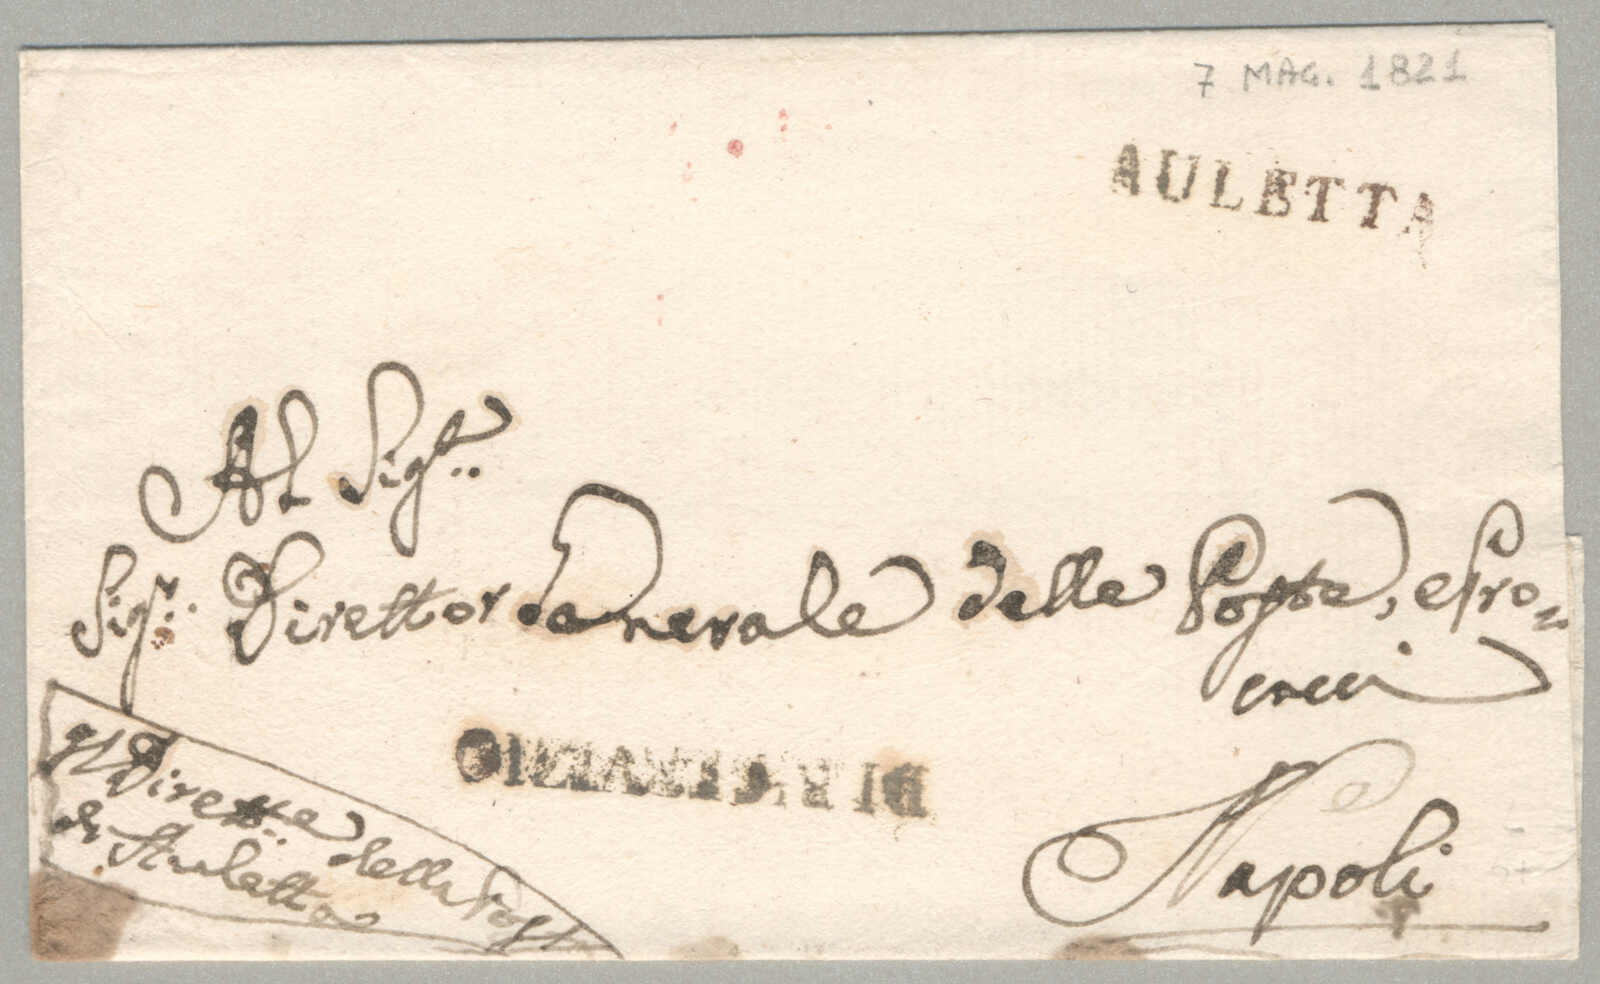 7 MAG. 1821
AULETTA
Al Sig.re
Sig.r Direttor Generale delle Poste, e Pro=
cacci
DI R.L SERVIZIO
Napoli
Il Dirett.e della Posta
di Auletta